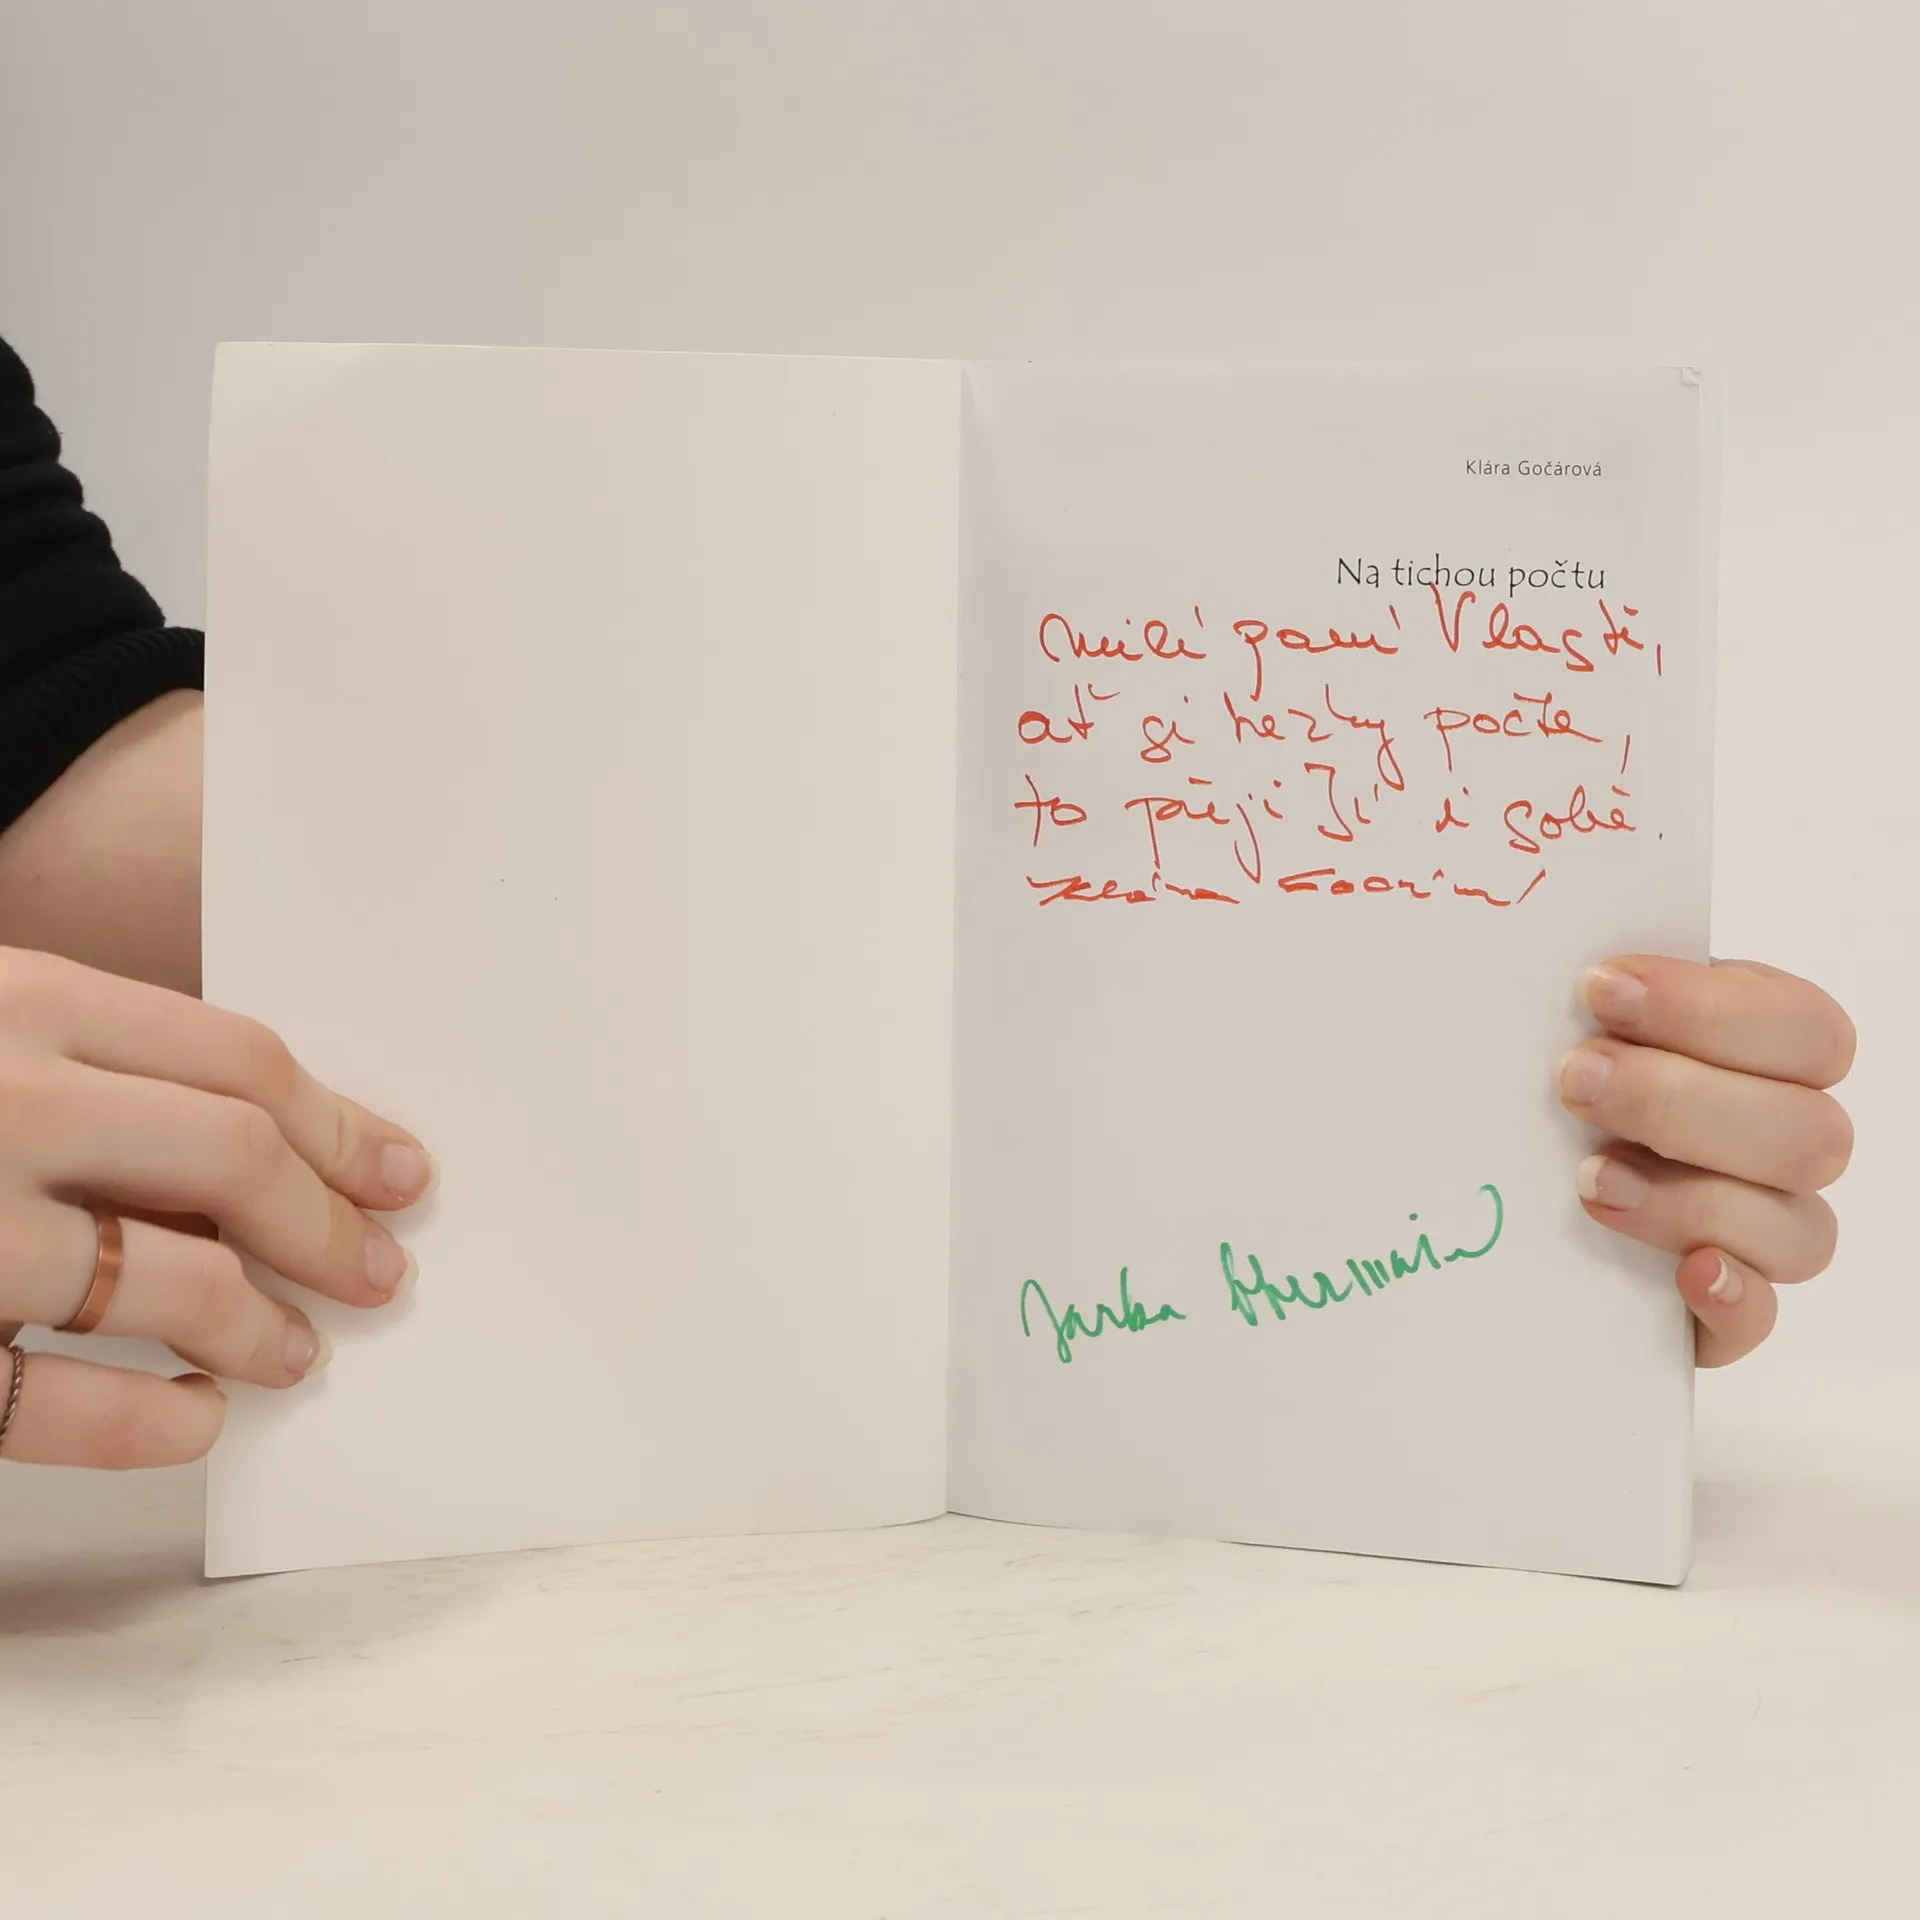 Klára Gočárová
Na tichou počtu
Milé paní Vlastě,
ať si hezky počte,
to přeji Jí i sobě.
Klára
Jarka